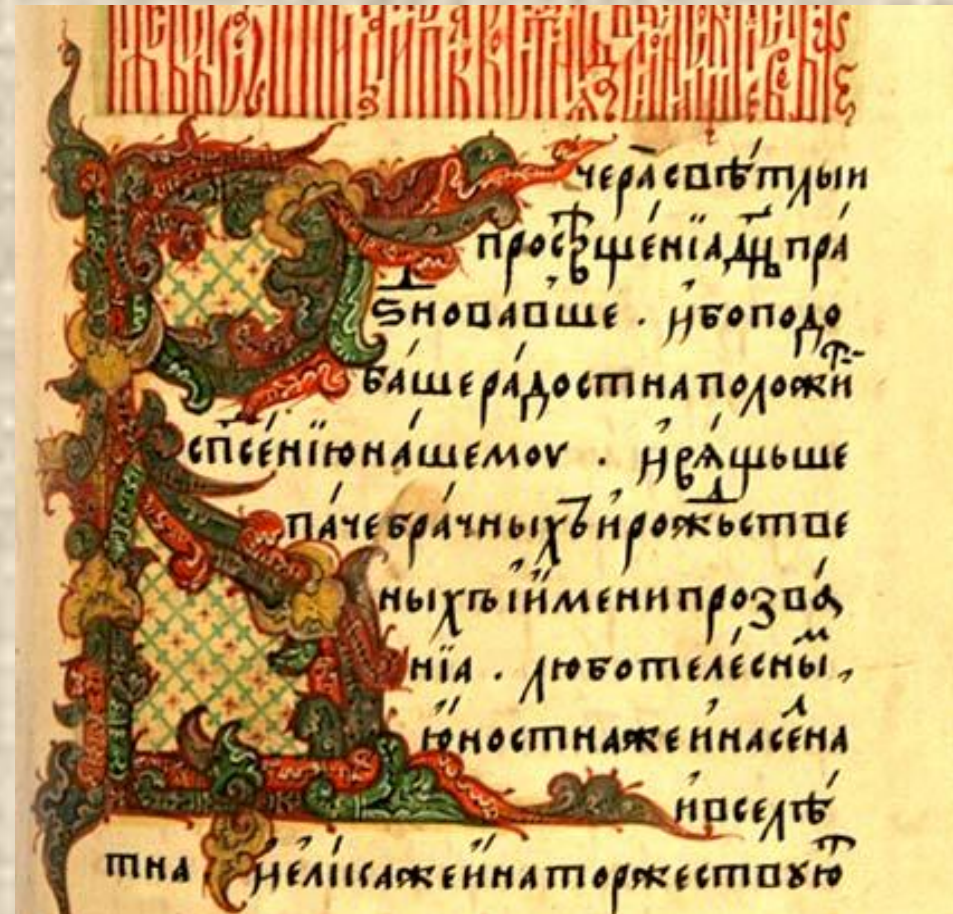 Вчера свѣтлыи
просвѣщенїа дн҃ь пра
ѕновавше . и бо подо
баше радостна положиⷮ
сп҃сенїю нашемоу . и вѧщьше
паче брачныхъ и рожьстве
ныхъ и имени прозва
нїа . люботелесныⷨ ,
юностна же и насеⷧна
и вселѣ
тна . и еликаже и на торжествꙋюⷮ